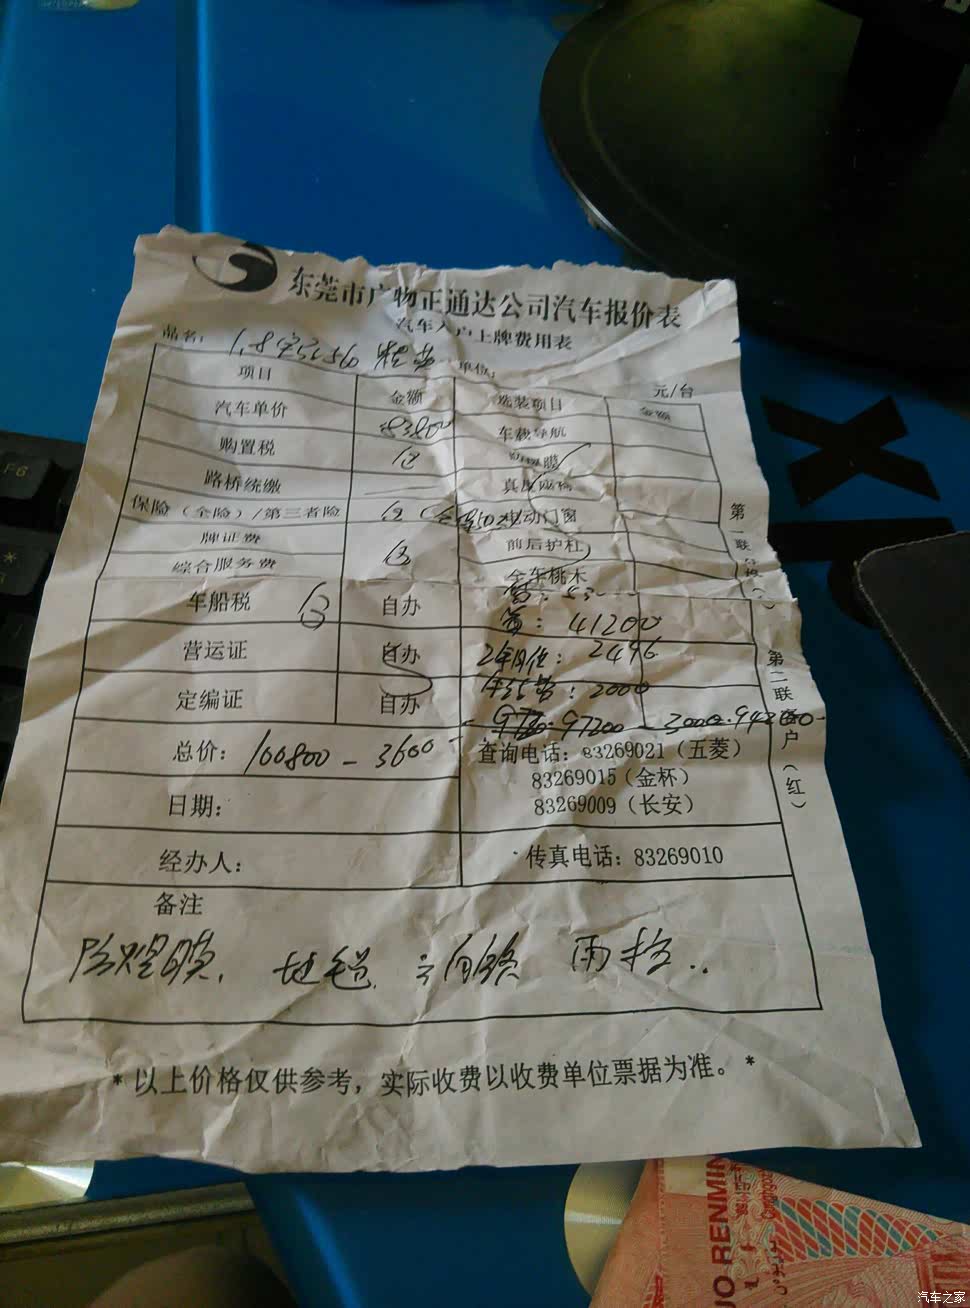 东莞市广物正通达公司汽车报价表
汽车入户上牌费用表
品名: 1.8 单位: 元/台
项目 金额 选装项目 金额
汽车单价 83800 车载导航
购置税 包 防爆膜
路桥统缴 真皮座椅
保险（全险）/第三者险 包 电动门窗
牌证费 前后护杠
综合服务费 包 全车桃木
车船税 包 自办
: 41200
营运证 自办 2496
定编证 自办 : 2000
97200 - 3000 =
总价: 100800 - 3600
查询电话: 83269021（五菱）
83269015（金杯）
83269009（长安）
日期:
经办人: 传真电话: 83269010
备注
地毯. 雨挡..
*以上价格仅供参考，实际收费以收费单位票据为准。*
第二联客户（红）
第 联
F6
UO RENMIN
汽车之家